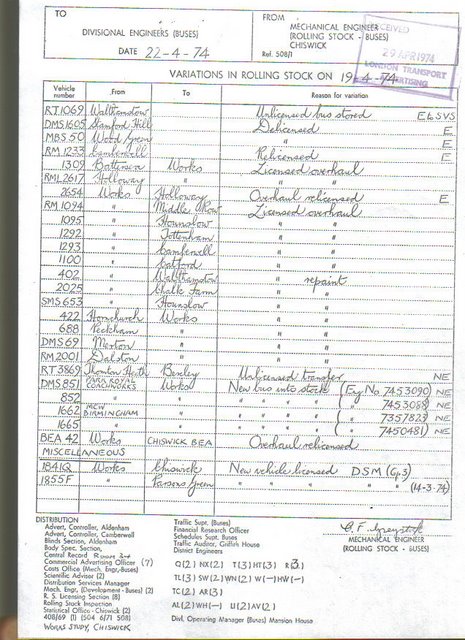 TO
FROM
DIVISIONAL ENGINEERS (BUSES)
MECHANICAL ENGINEER
(ROLLING STOCK - BUSES)
CHISWICK
DATE 22-4-74
Ref. 508/1
RECEIVED
29 APR 1974
LONDON TRANSPORT
ADVERTISING
VARIATIONS IN ROLLING STOCK ON 19-4-74
Vehicle number From To Reason for variation
RT1069 Walthamstow Unlicensed bus stored E & SVS
DMS1605 Stamford Hill Delicensed E
MBS 50 Wood Green " E
RM 1233 Camberwell Relicensed E
1309 Battersea Works Licensed overhaul
RML2617 Holloway " " "
2654 Works Holloway Overhaul relicensed E
RM 1094 " Middle Row Licensed overhaul
1095 " Hounslow " "
1292 " Tottenham " "
1293 " Camberwell " "
1100 " Catford " "
402 " Walthamstow " repaint
2025 " Chalk Farm " "
SMS 653 " Hounslow " "
422 Hornchurch Works " "
688 Peckham " " "
DMS 69 Merton " " "
RM 2001 Dalston " " "
RT3869 Thornton Heath Bexley Unlicensed transfer NE
DMS 851 PARK ROYAL COACHWORKS Works New bus into stock (Eng. No. 7453090) NE
852 " " " " " " ( " 7453088) NE
1662 MCW BIRMINGHAM " " " " " ( " 7357823) NE
1665 " " " " " " ( " 7450481) NE
BEA 42 Works CHISWICK BEA Overhaul relicensed
MISCELLANEOUS
1841Q Works Chiswick New vehicle licensed DSM (Gp3)
1855F " Parsons Green " " " " " (14-3-74)
MECHANICAL ENGINEER
(ROLLING STOCK - BUSES)
DISTRIBUTION
Advert, Controller, Aldenham
Advert, Controller, Camberwell
Blinds Section, Aldenham
Body Spec. Section,
Central Record
Commercial Advertising Officer (7)
Costs Office (Mech. Engr.-Buses)
Scientific Adviser (2)
Distribution Services Manager
Mech. Engr. (Development - Buses) (2)
R. S. Licensing Section (8)
Rolling Stock Inspection
Statistical Office - Chiswick (2)
408/69 (1) 504 6/71 508)
WORKS STUDY, CHISWICK
Traffic Supt. (Buses)
Financial Research Officer
Schedules Supt. Buses
Traffic Auditor, Griffith House
District Engineers
Q(2) NX(2) T(3) HT(3) R(3)
TL(3) SW(2) WN(2) W(-) HW(-)
TC(2) AR(3)
AL(2) WH(-) U(2) AV(2)
Divl. Operating Manager (Buses) Mansion House